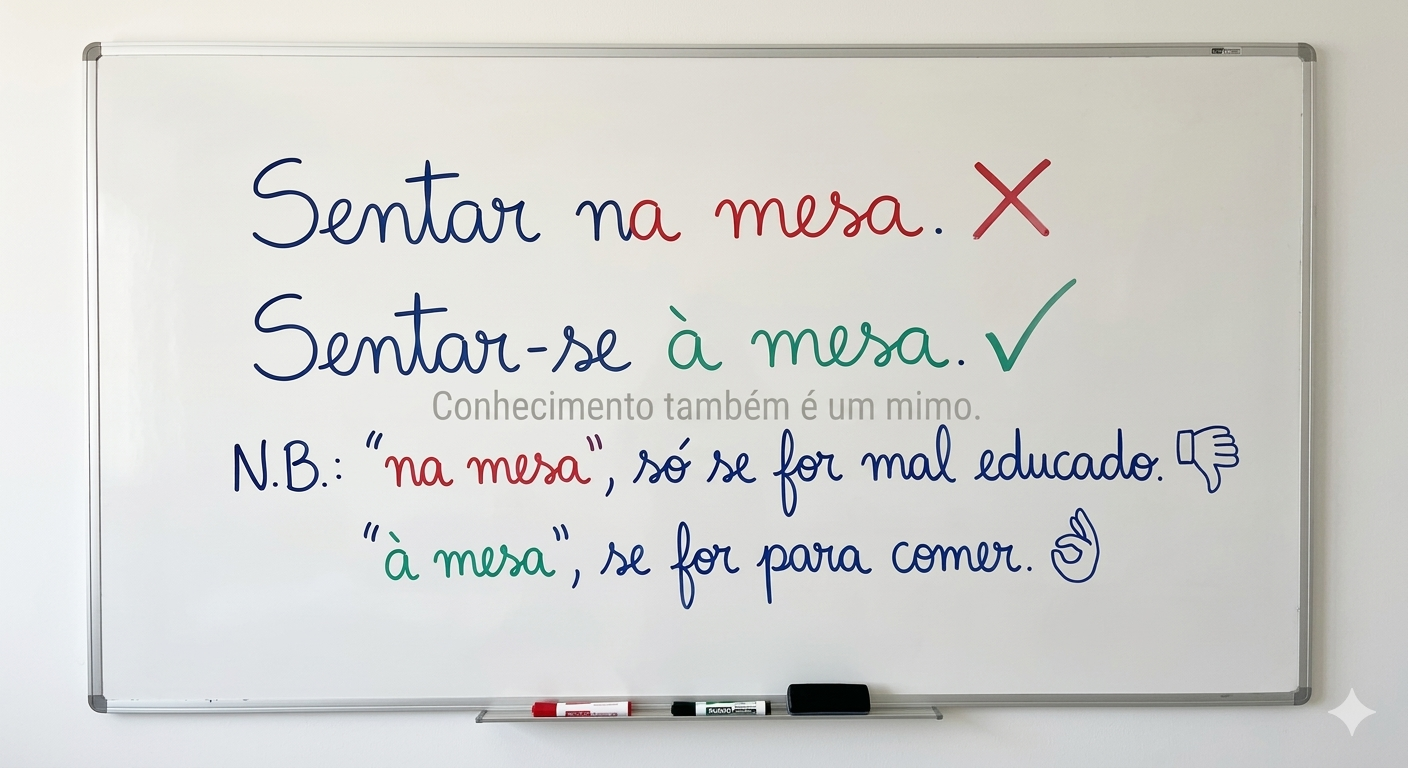 Sentar na mesa. ✗
Sentar-se à mesa. ✓
Conhecimento também é um mimo.
N.B.: "na mesa", só se for mal educado. 👎
"à mesa", se for para comer. 👌